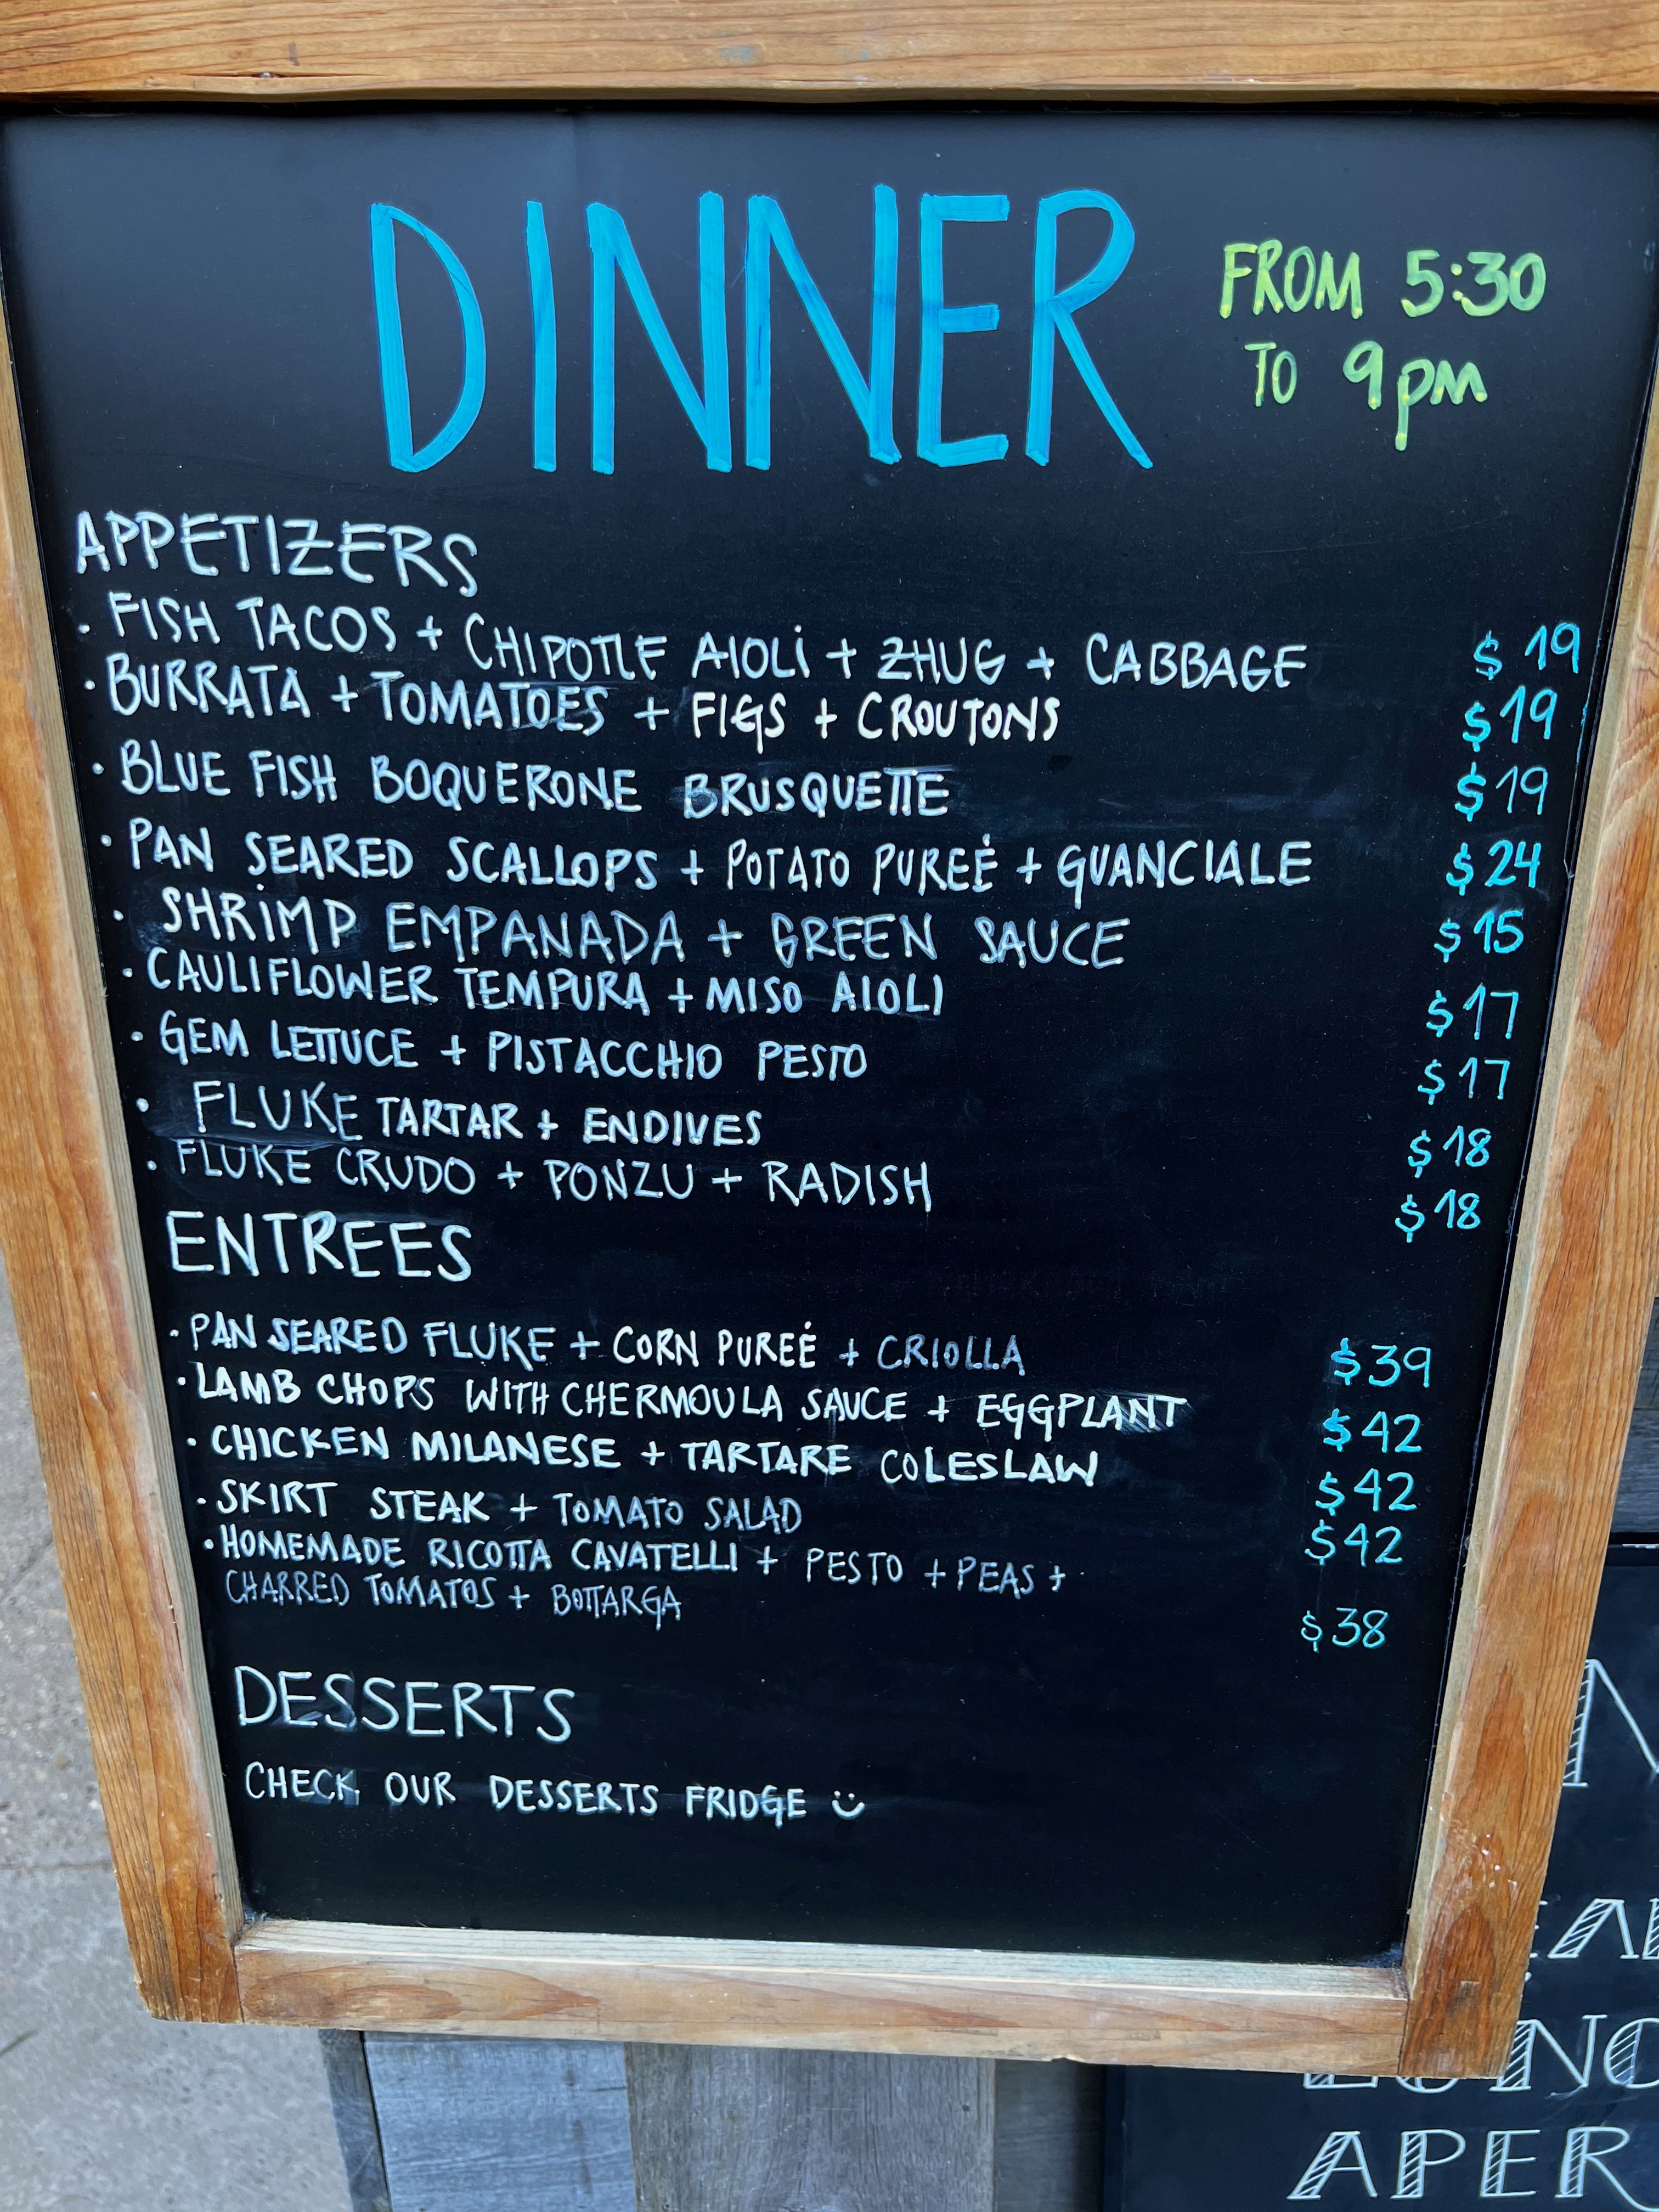 DINNER
FROM 5:30
TO 9pm
APPETIZERS
· FISH TACOS + CHIPOTLE AIOLI + ZHUG + CABBAGE $19
· BURRATA + TOMATOES + FIGS + CROUTONS $19
· BLUE FISH BOQUERONE BRUSQUETTE $19
· PAN SEARED SCALLOPS + POTATO PUREÉ + GUANCIALE $24
· SHRIMP EMPANADA + GREEN SAUCE $15
· CAULIFLOWER TEMPURA + MISO AIOLI $17
· GEM LETTUCE + PISTACCHIO PESTO $17
· FLUKE TARTAR + ENDIVES $18
· FLUKE CRUDO + PONZU + RADISH $18
ENTREES
· PAN SEARED FLUKE + CORN PUREÉ + CRIOLLA $39
· LAMB CHOPS WITH CHERMOULA SAUCE + EGGPLANT $42
· CHICKEN MILANESE + TARTARE COLESLAW $42
· SKIRT STEAK + TOMATO SALAD $42
· HOMEMADE RICOTTA CAVATELLI + PESTO + PEAS +
CHARRED TOMATOS + BOTTARGA $38
DESSERTS
CHECK OUR DESSERTS FRIDGE ü
APER